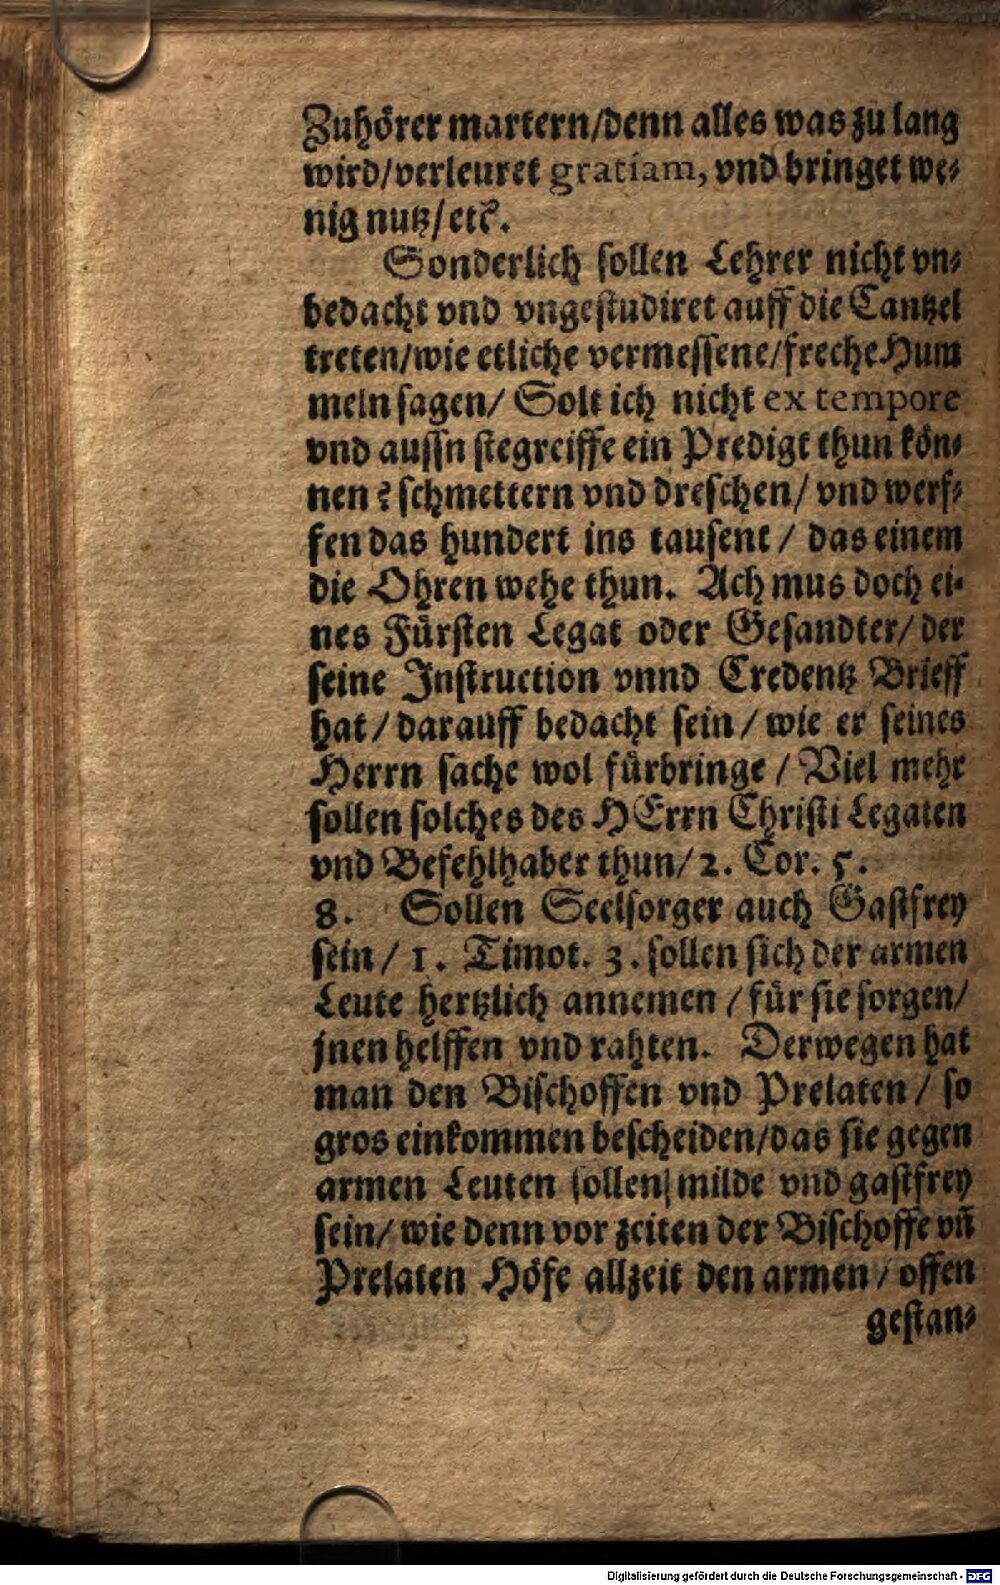 Zuhörer martern/denn alles was zu lang
wird/verleuret gratiam, vnd bringet we⸗
nig nutz/etc̃.
Sonderlich sollen Lehrer nicht vn⸗
bedacht vnd vngestudiret auff die Cantzel
treten/wie etliche vermessene/freche Hum
meln sagen/ Solt ich nicht ex tempore
vnd aussn stegreiffe ein Predigt thun kön⸗
nen? schmettern vnd dreschen/ vnd werf⸗
fen das hundert ins tausent / das einem
die Ohren wehe thun. Ach mus doch ei⸗
nes Fürsten Legat oder Gesandter/ der
seine Instruction vnnd Credentz Brieff
hat / darauff bedacht sein / wie er seines
Herrn sache wol fürbringe / Viel mehr
sollen solches des HErrn Christi Legaten
vnd Befehlhaber thun/ 2. Cor. 5.
8. Sollen Seelsorger auch Gastfrey
sein / 1. Timot. 3. sollen sich der armen
Leute hertzlich annemen / für sie sorgen/
jnen helffen vnd rahten. Derwegen hat
man den Bischoffen vnd Prelaten / so
gros einkommen bescheiden/das sie gegen
armen Leuten sollen milde vnd gastfrey
sein/ wie denn vor zeiten der Bischoffe vn̄
Prelaten Höfe allzeit den armen / offen
gestan⸗
Digitalisierung gefördert durch die Deutsche Forschungsgemeinschaft - DFG